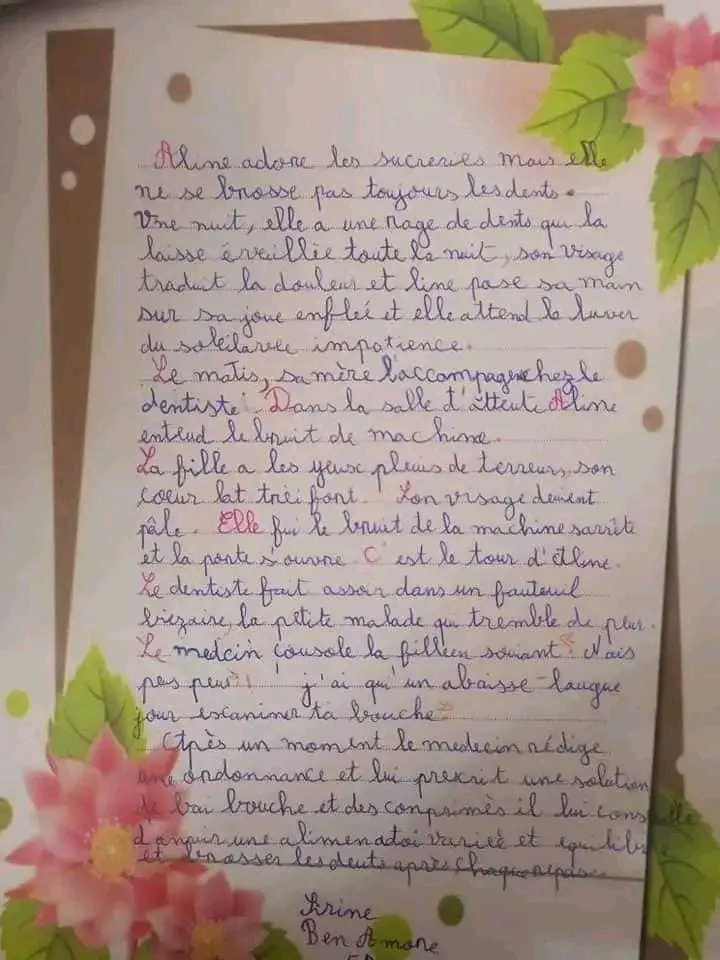 Aline adore les sucreries mais elle
ne se brosse pas toujours les dents.
Une nuit, elle a une rage de dents qui la
laisse éveillée toute la nuit, son visage
traduit la douleur et line pose sa main
sur sa joue enfleé et elle attend le luver
du soleil avec impatience.
Le matis, sa mère l'accompagne chez le
dentiste. Dans la salle d'attente Aline
entend le bruit de machine.
La fille a les yeux pleins de terreurs, son
coeur bat très font. Son visage devient
pâle. Elle fui le bruit de la machine sarrète
et la porte s'ouvre C'est le tour d'Aline.
Le dentiste fait assoir dans un fauteuil
la petite malade qui tremble de peur.
Le medcin console la fille en souriant : « N'ais
pas peur ! j'ai qu'un abaisse-langue
pour examiner ta bouche »
Après un moment le medecin rédige
une ordonnance et lui prescrit une solution
de bai bouche et des comprimés il lui conseille
une varieé et equilibrée
et brosser les dents après chaque repas.
Syrine
Ben Amore